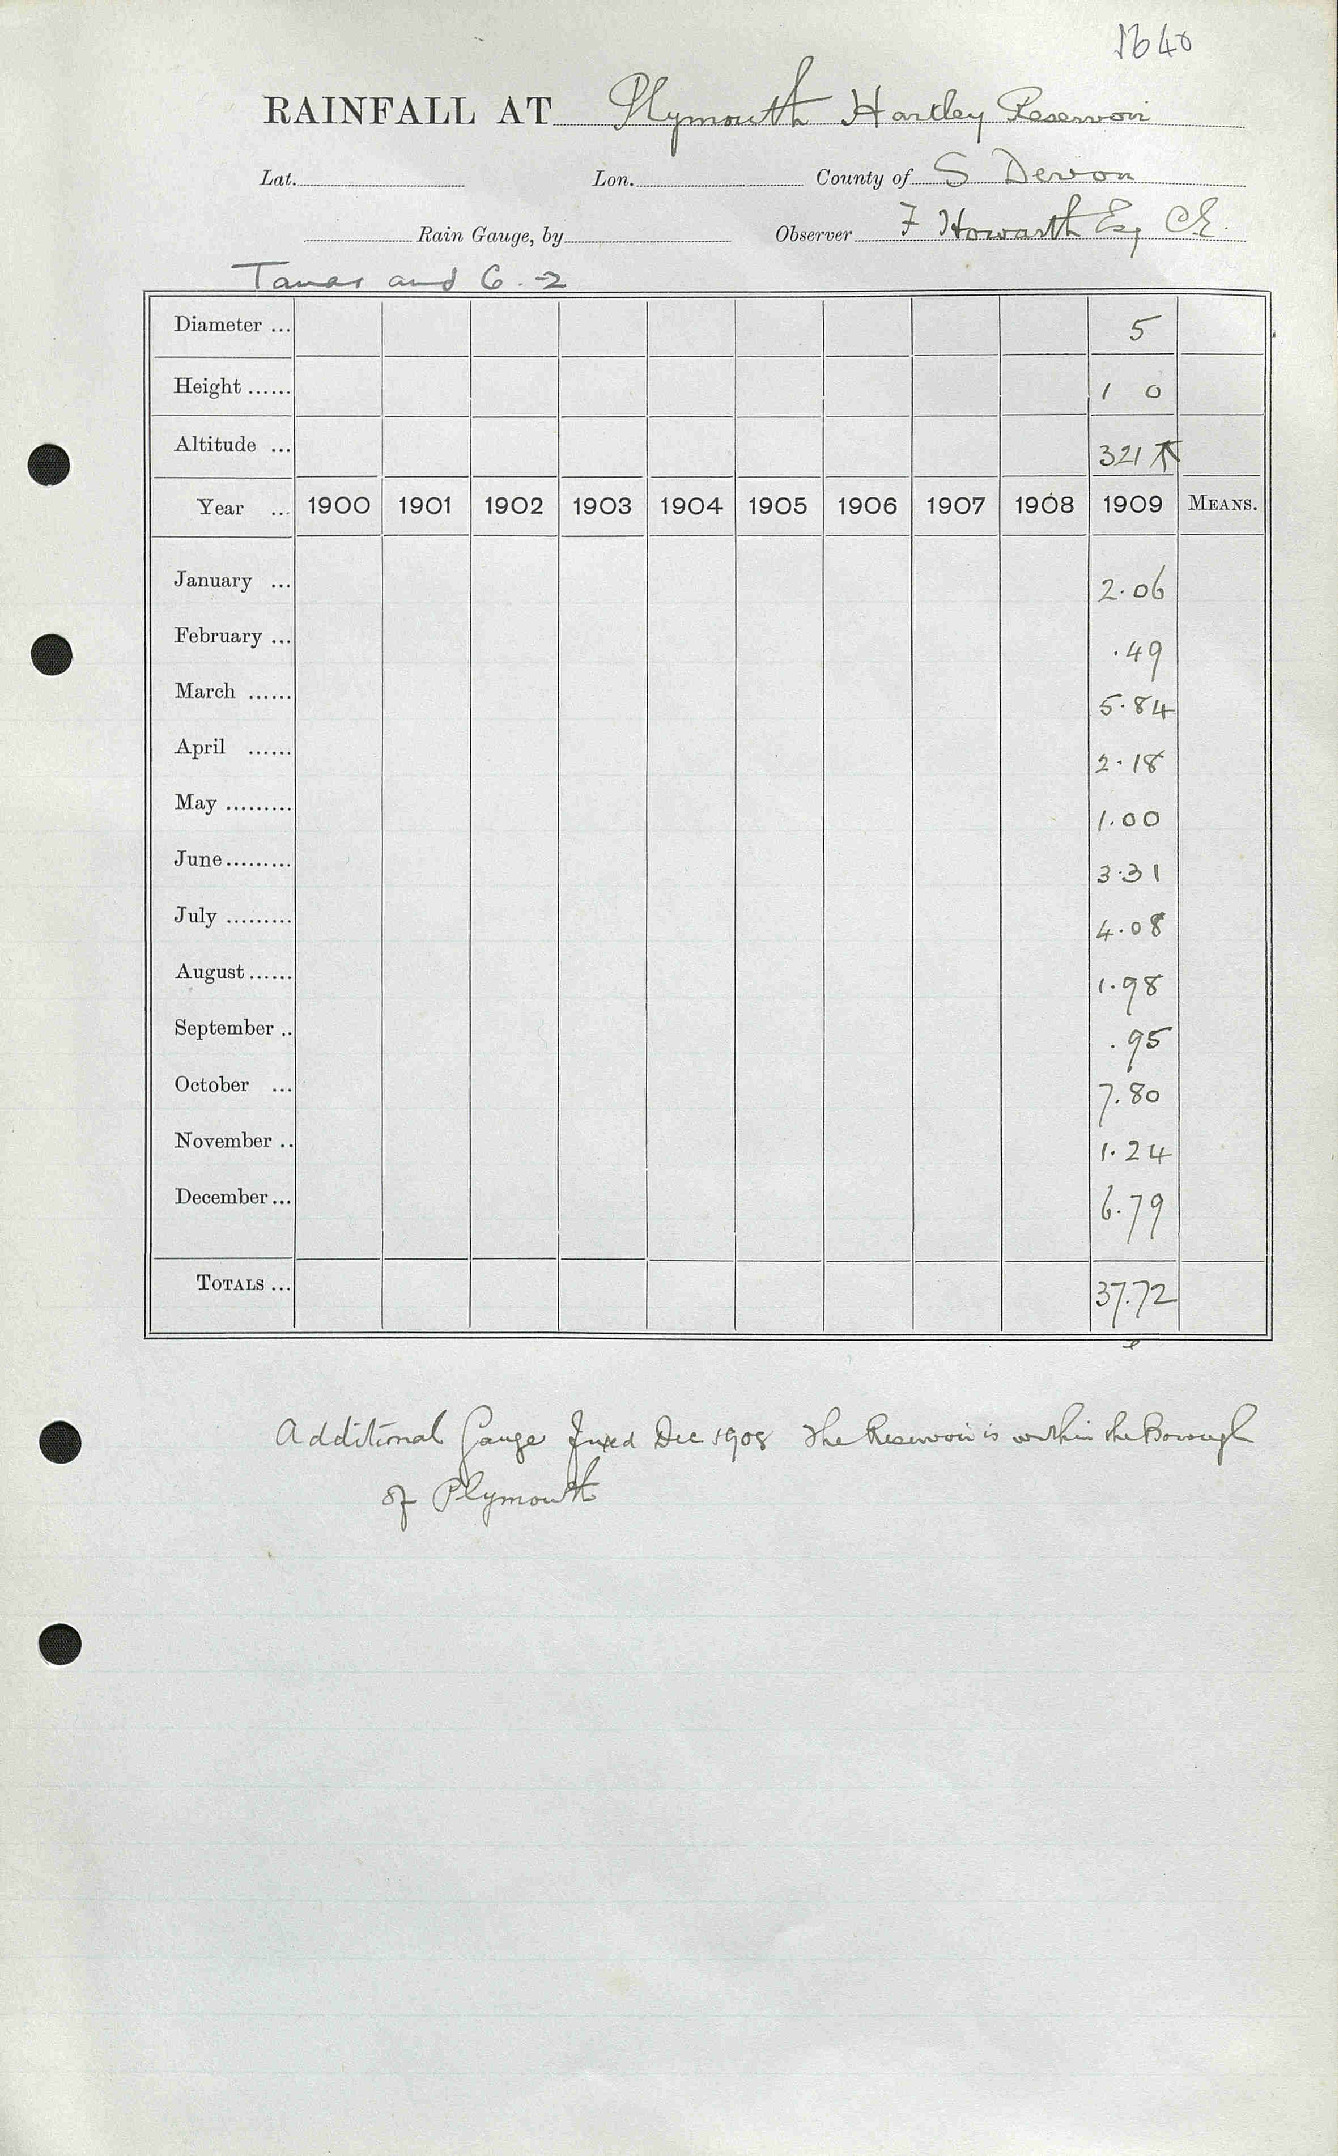 1640
RAINFALL AT Plymouth Hartley Reservoir
Lat. Lon. County of S Devon
Rain Gauge, by Observer F Howarth Esq CE.
Tamar and 6.-2
Diameter ... 5
Height ...... 1 0
Altitude ... 321
Year ... 1900 1901 1902 1903 1904 1905 1906 1907 1908 1909 MEANS.
January ... 2.06
February ... .49
March ...... 5.84
April ...... 2.18
May ......... 1.00
June ......... 3.31
July ......... 4.08
August ...... 1.98
September .. .95
October ... 7.80
November .. 1.24
December ... 6.79
TOTALS ... 37.72
Additional Gauge fixed Dec 1908 The Reservoir is within the Borough
of Plymouth